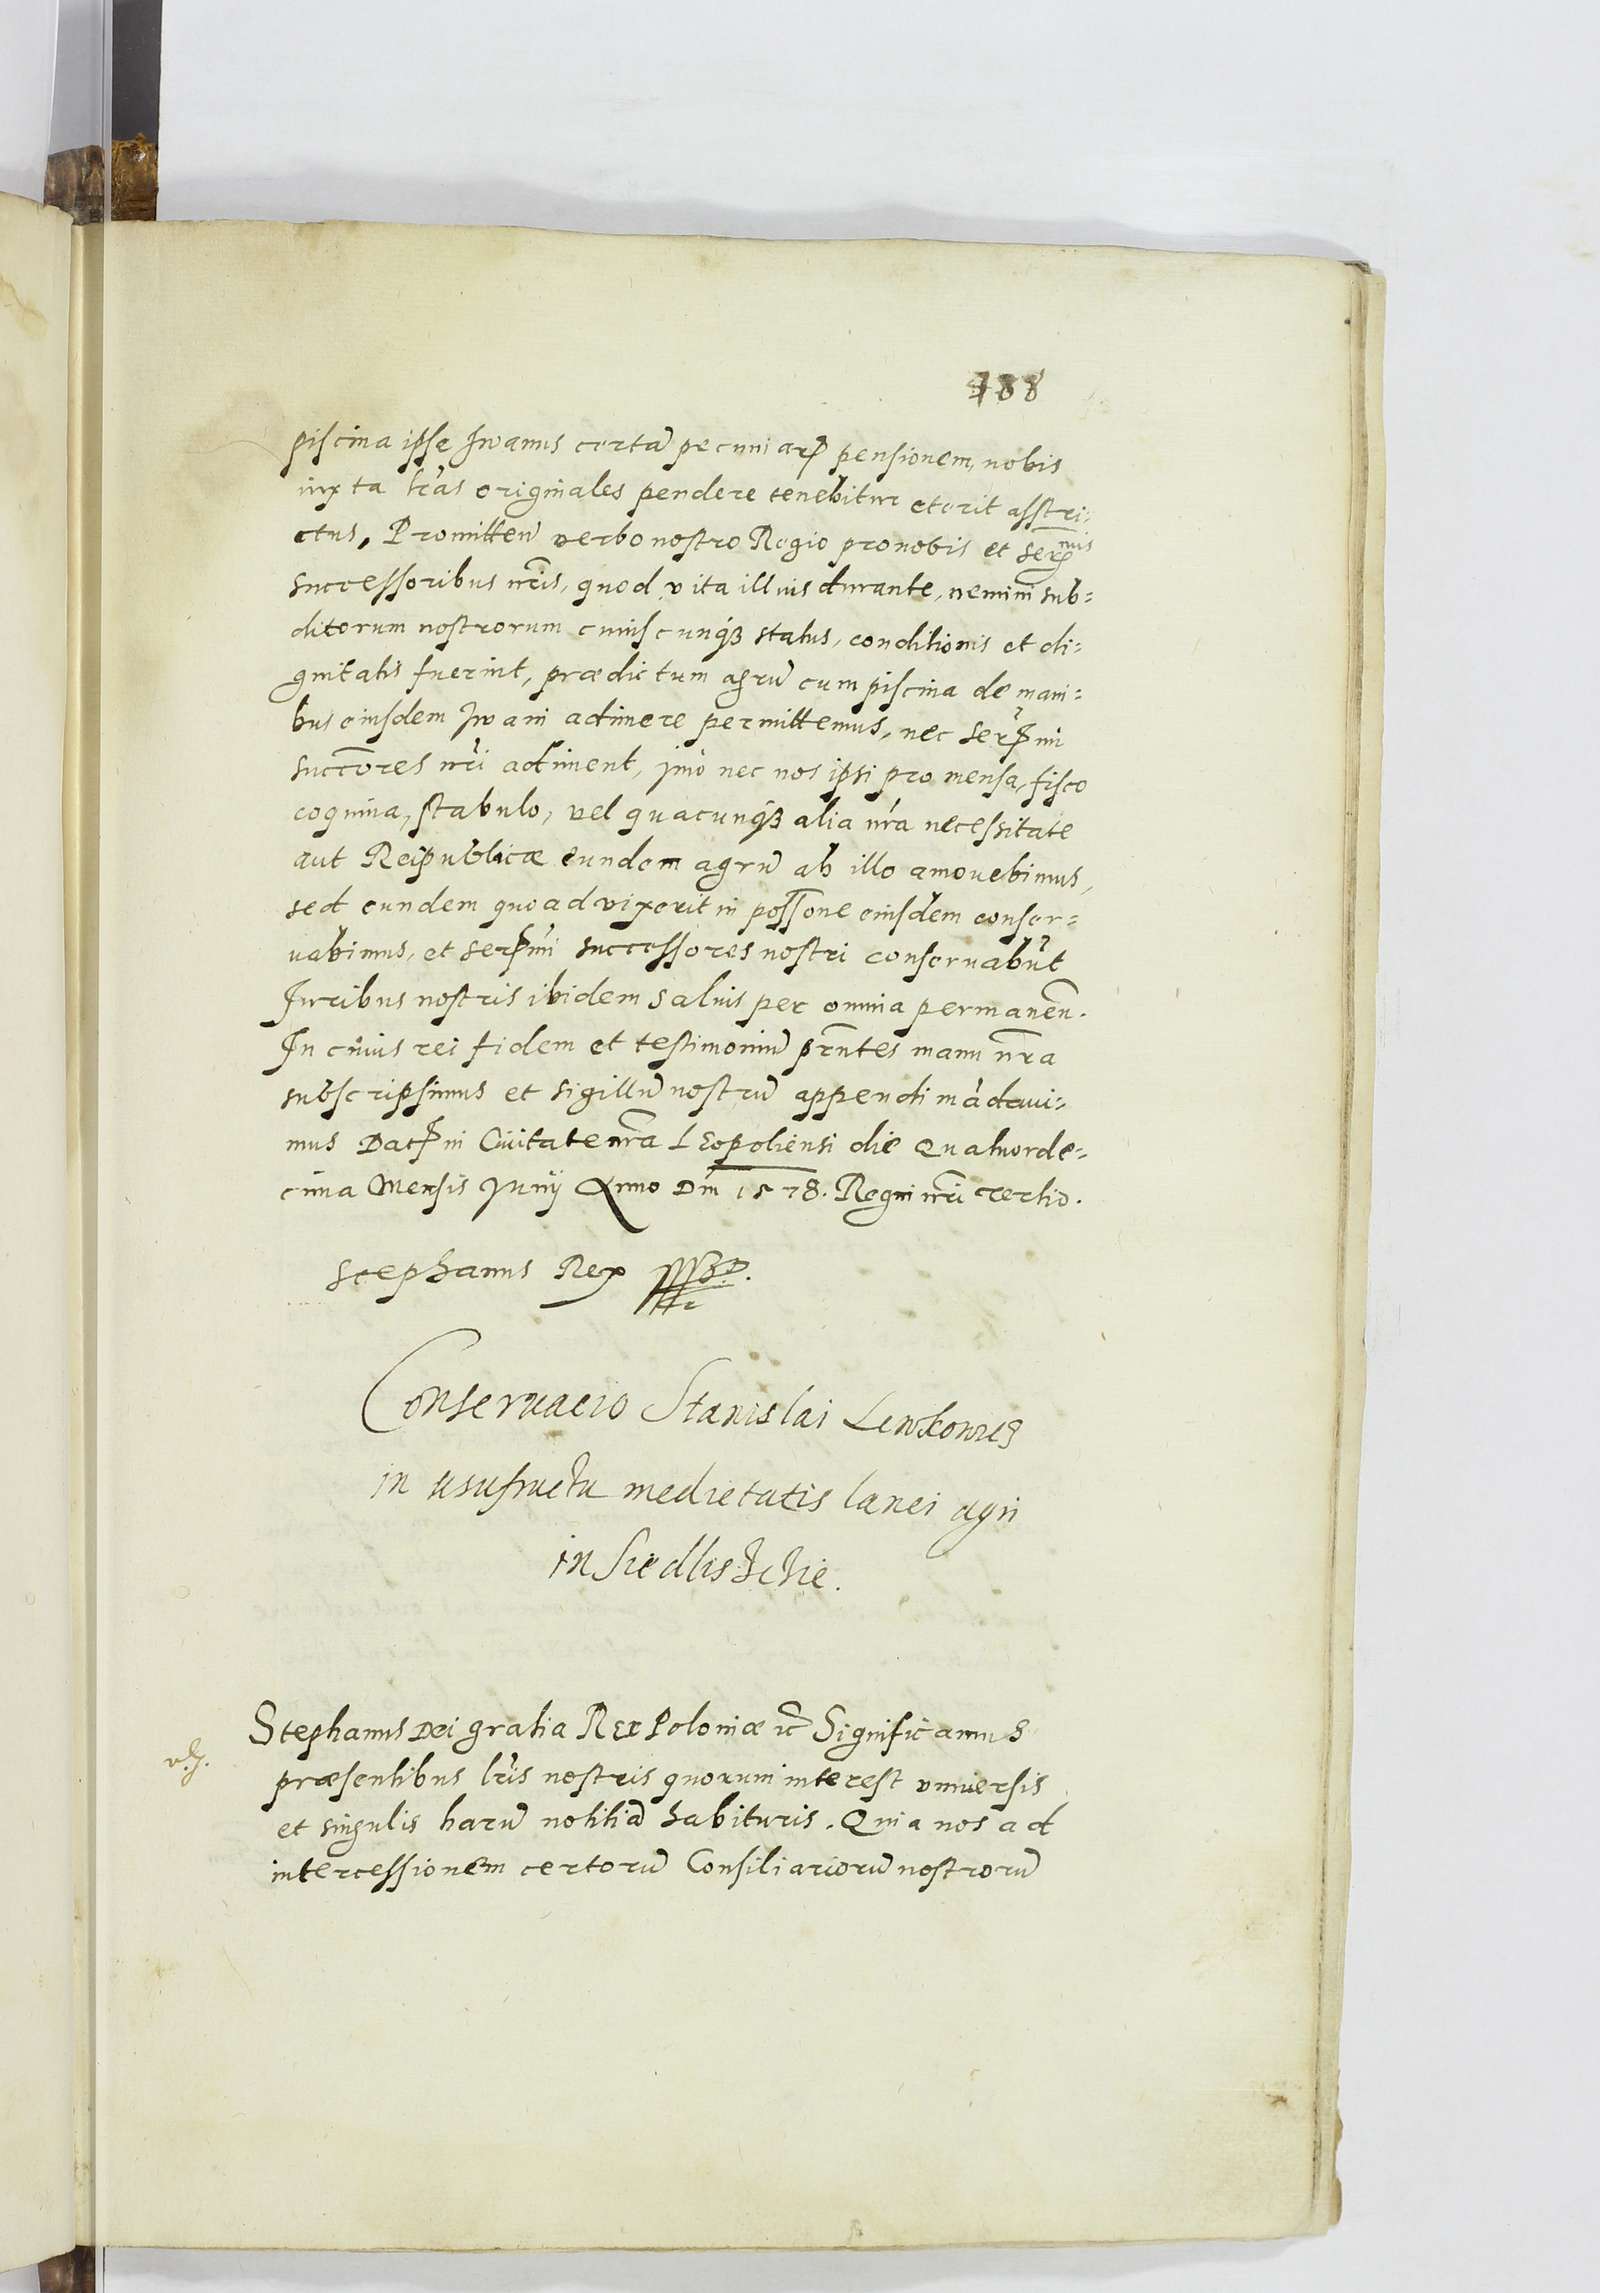 188
piscina ipse Iwanus certã pecuniarꝝ pensionem, nobis
iuxta lr̃as originales pendere tenebitur et erit asstri-
ctus, Promitten̄ verbo nostro Regio pro nobis et serꝝmis
successoribus nr̃is, quod vita illius durante, nemini sub-
ditorum nostrorum cuiuscunqȝ status, conditionis et di-
gnitatis fuerint, prædictum agrũ cum piscina de mani-
bus eiusdem Iwani adimere permittemus, nec serꝝmi
succ̃ores nr̃i adiment, imò nec nos ipsi pro mensa, fisco
coquina, stabulo, vel quacunqȝ alia nr̃a necessitate
aut Reipublicæ eundem agrũ ab illo amouebimus,
sed eundem quoad vixerit in poss̃one eiusdem conser-
uabimus, et serꝝmi successores nostri conseruabũt
Iuribus nostris ibidem saluis per omnia permanẽn.
In cuius rei fidem et testimoniũ pr̃ntes manu nr̃a
subscripsimus et sigillũ nostrũ appendi mãdaui-
mus Datꝝ in Ciuitate nr̃a Leopoliensi die Quatuorde-
cima Mensis Iunij Anno Dm̃ 1578. Regni nr̃i tertio.
Stephanus Rex
Conseruacio Stanislai Lewkowicz
in usufructu medietatis lanei agri
in Siedlisstchie.
Stephanus Dei gratia Rex Poloniæ ec̃ Significamus
præsentibus lr̃is nostris quorum interest vniuersis
et singulis harũ notitiã habituris. Quia nos ad
intercessionem certorũ Consiliariorũ nostrorũ